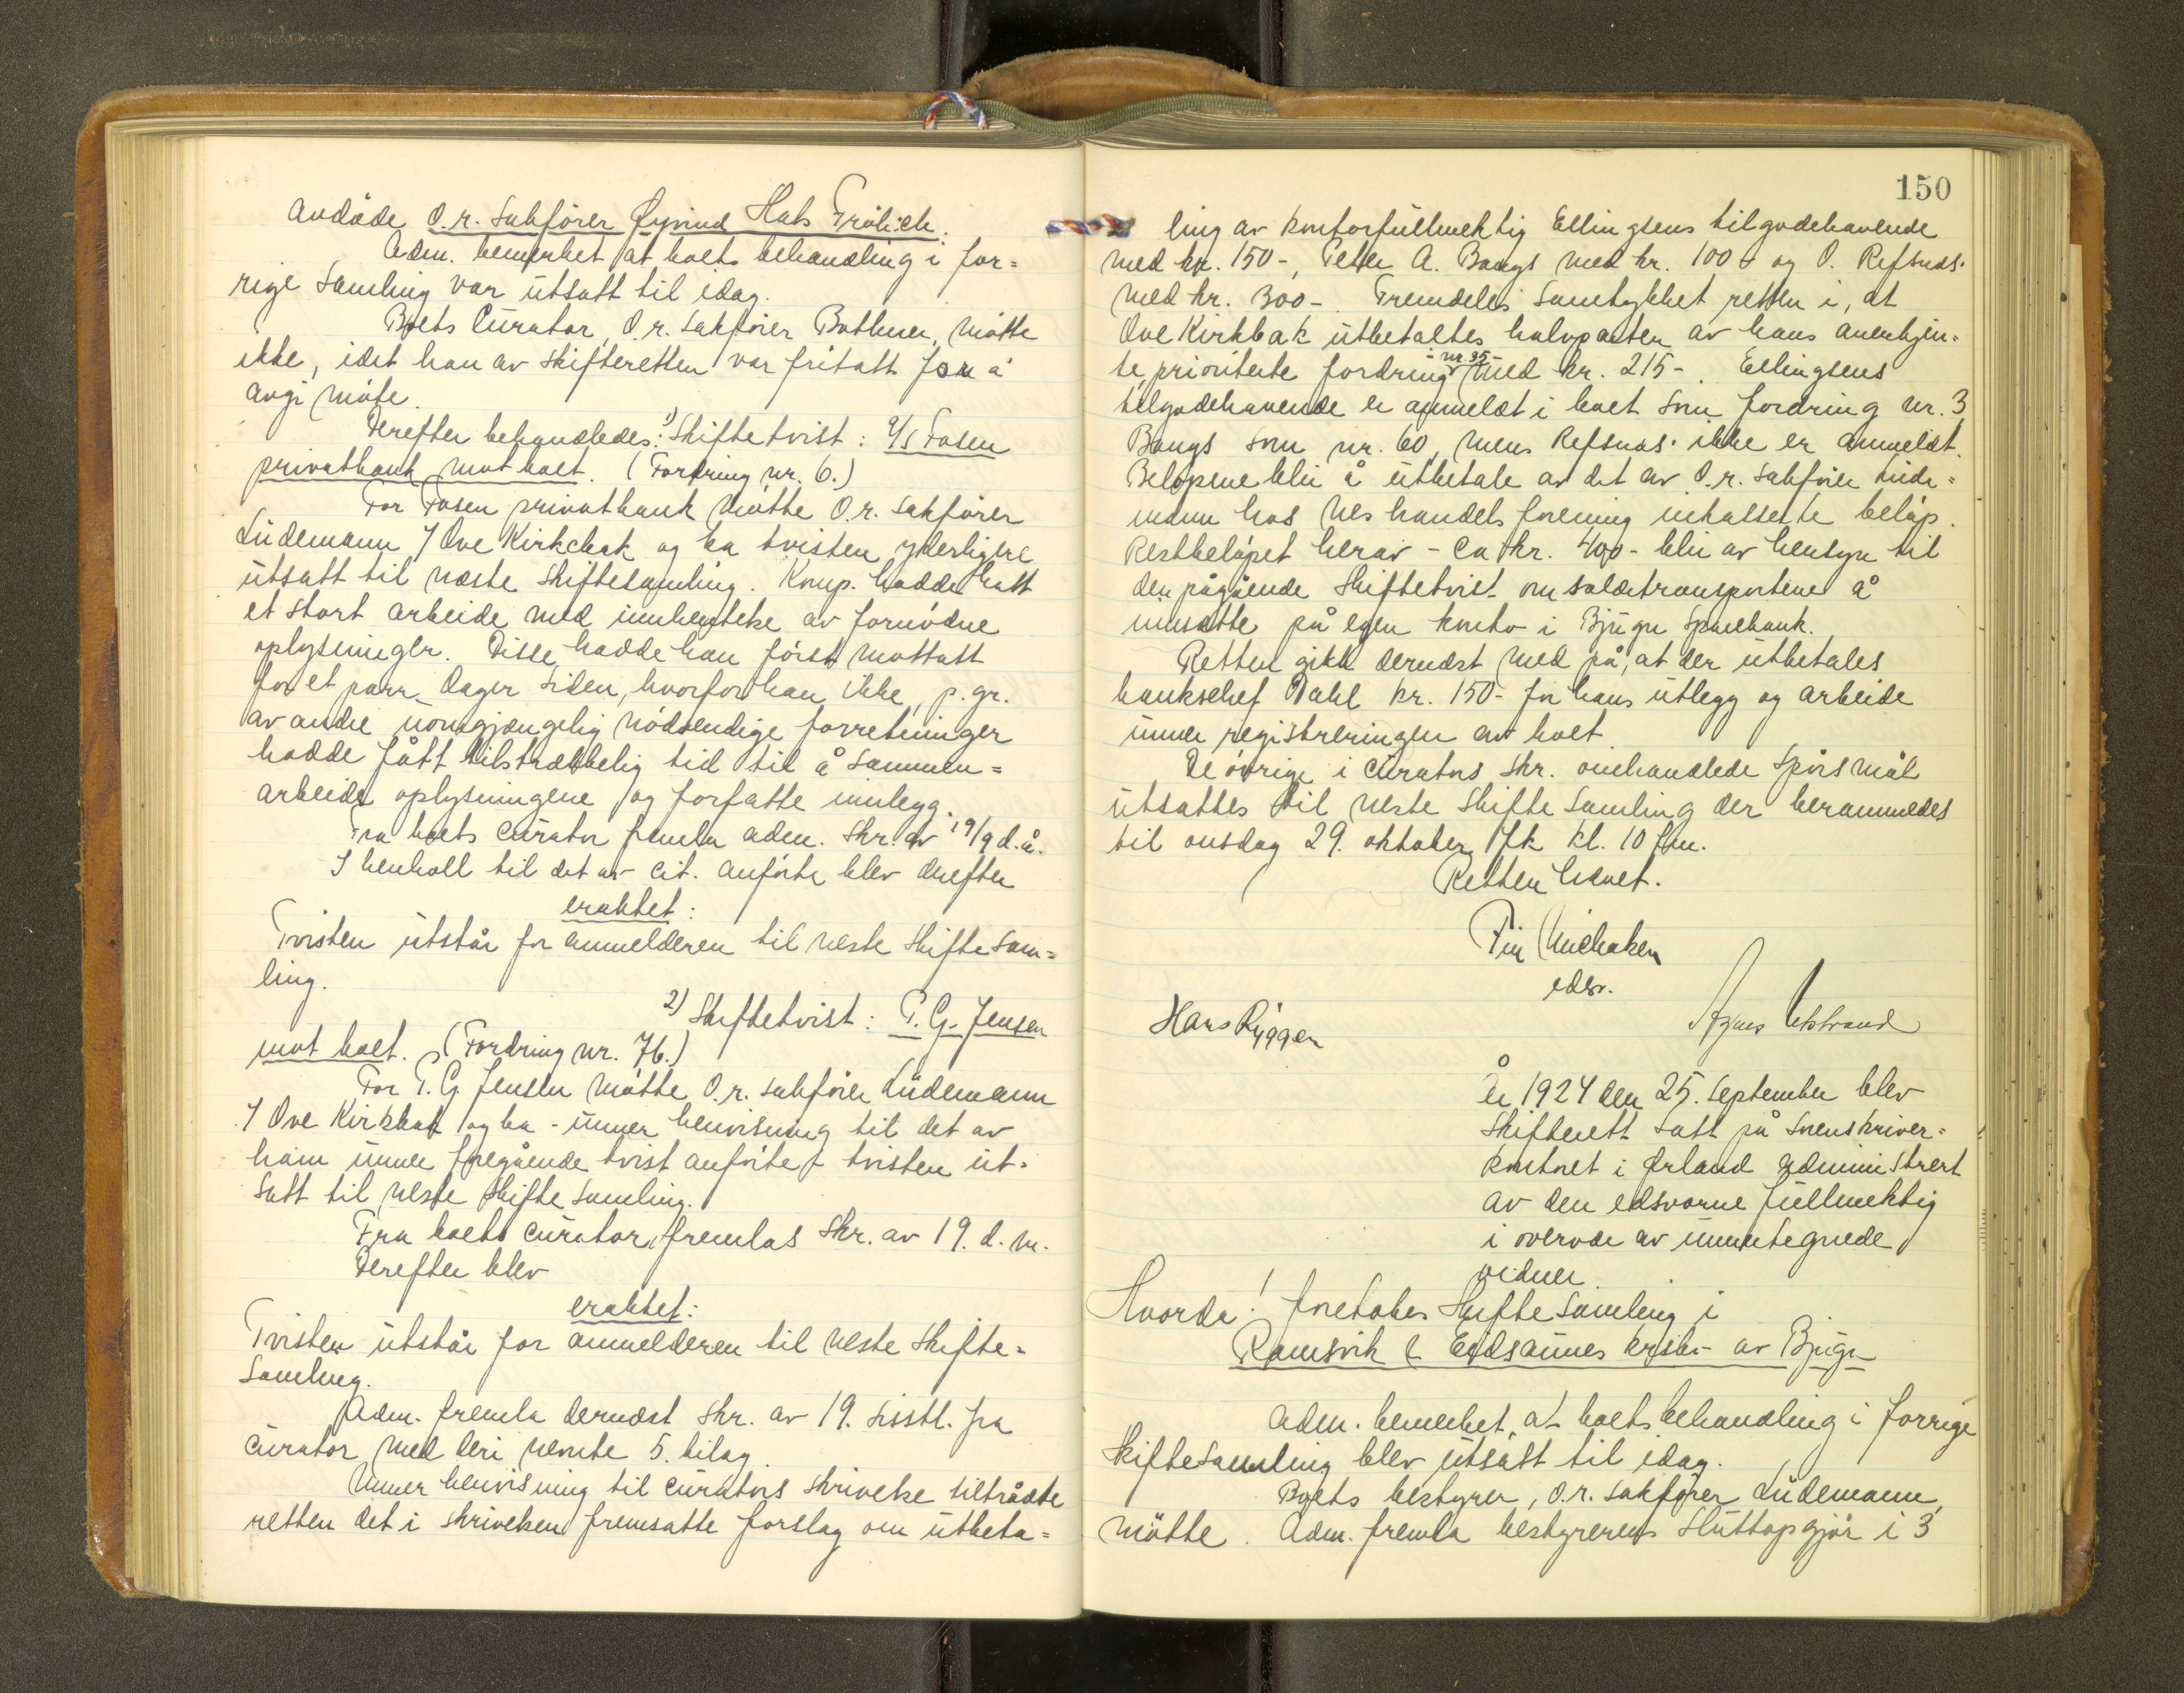 Avdøde O.r. Sakfører Øyvind Hals Frölich.
Adm. bemerket at boets behandling i for=
rige Samling var utsatt til idag.
Boets Curator, O.r. Sakfører Bothner, møtte
ikke, idet han av Skifteretten var fritatt for å
avgi møte.
Derefter behandledes: 1) Skiftetvist: A/S Fosen
privatbank mot boet. (Fordring nr. 6.)
For Fosen privatbank møtte O.r. Sakfører
Lüdemann / Ove Kirkbak og ba tvisten yderligere
utsatt til næste Skiftesamling. Komp. hadde hatt
et stort arbeide med innhentelse av fornødne
oplysninger. Disse hadde han først mottatt
for et parr dager siden, hvorfor han ikke, p.gr.
av andre uomgjængelig nødvendige forretninger
hadde fått tilstrækkelig tid til å sammen=
arbeide oplysningene og forfatte innlegg.
Fra boets Curator fremla adm. Skr. av 19/9 d.å.
I henholl til det av cit. anførte blev derefter
eraktet:
Tvisten utstår for anmelderen til neste Skiftesam=
ling.
2) Skiftetvist: P. G. Jensen
mot boet. (Fordring nr. 76.)
For P. G. Jensen møtte O.r. Sakfører Lüdemann
/ Ove Kirkbak og ba - unner henvisning til det av
ham unner foregående tvist anførte - tvisten ut=
satt til neste Skiftesamling.
Fra boets curator fremlas Skr. av 19. d.m.
Derefter blev
eraktet:
Tvisten utstår for anmelderen til neste Skifte=
Samling.
Adm. fremla dernæst Skr. av 19. sisstl. fra
Curator med deri nevnte 5. bilag.
Unner henvisning til curators skrivelse tiltrådte
retten det i skrivelsen fremsatte forslag om utbeta=
150
ling av kontorfullmektig Ellingsens tilgodehavende
med kr. 150-, Petter A. Bangs med kr. 100- og O. Refsnes'
med kr. 300-. Fremdeles samtykket retten i, at
Ove Kirkbak utbetaltes halvparten av hans anerkjen=
te, prioriterte fordring - nr. 35 - med kr. 215-. Ellingsens
tilgodehavende er anmeldt i boet som fordring nr. 3,
Bangs som nr. 60, mens Refsnes' ikke er anmeldt.
Beløpene blir å utbetale av det av O.r. Sakfører Lüde=
mann hos Nes handelsforening innkasserte beløp.
Restbeløpet herav - ca kr. 400- blir av hensyn til
den pågående Skiftetvist om soldetransportene å
innsætte på egen konto i Bjugn Sparebank.
Retten gikk dernæst med på, at der utbetales
banksjef Dahl kr. 150- for hans utlegg og arbeide
unner registreringen av boet.
De øvrige i curators skr. omhandlede Spørsmål
utsattes til neste Skiftesamling der berammedes
til onsdag 29. oktober fk kl. 10 fm.
Retten hævet.
Fin
edsv.
Hans Ryggen
Agnes Utstrand
År 1924 den 25. September blev
Skifterett satt på Sorenskriver=
kontoret i Ørland administrert
av den edsvorne fullmektig
i overvær av unnertegnede
vidner.
Hvorda! foretokes Skiftesamling i
Ramsvik & Eidsaunes krsbo av Bjugn
Adm. bemerket, at boets behandling i forrige
Skiftesamling blev utsatt til idag.
Boets bestyrer, O.r. Sakfører Lüdemann,
møtte. Adm. fremla bestyrerens Sluttopgjør i 3